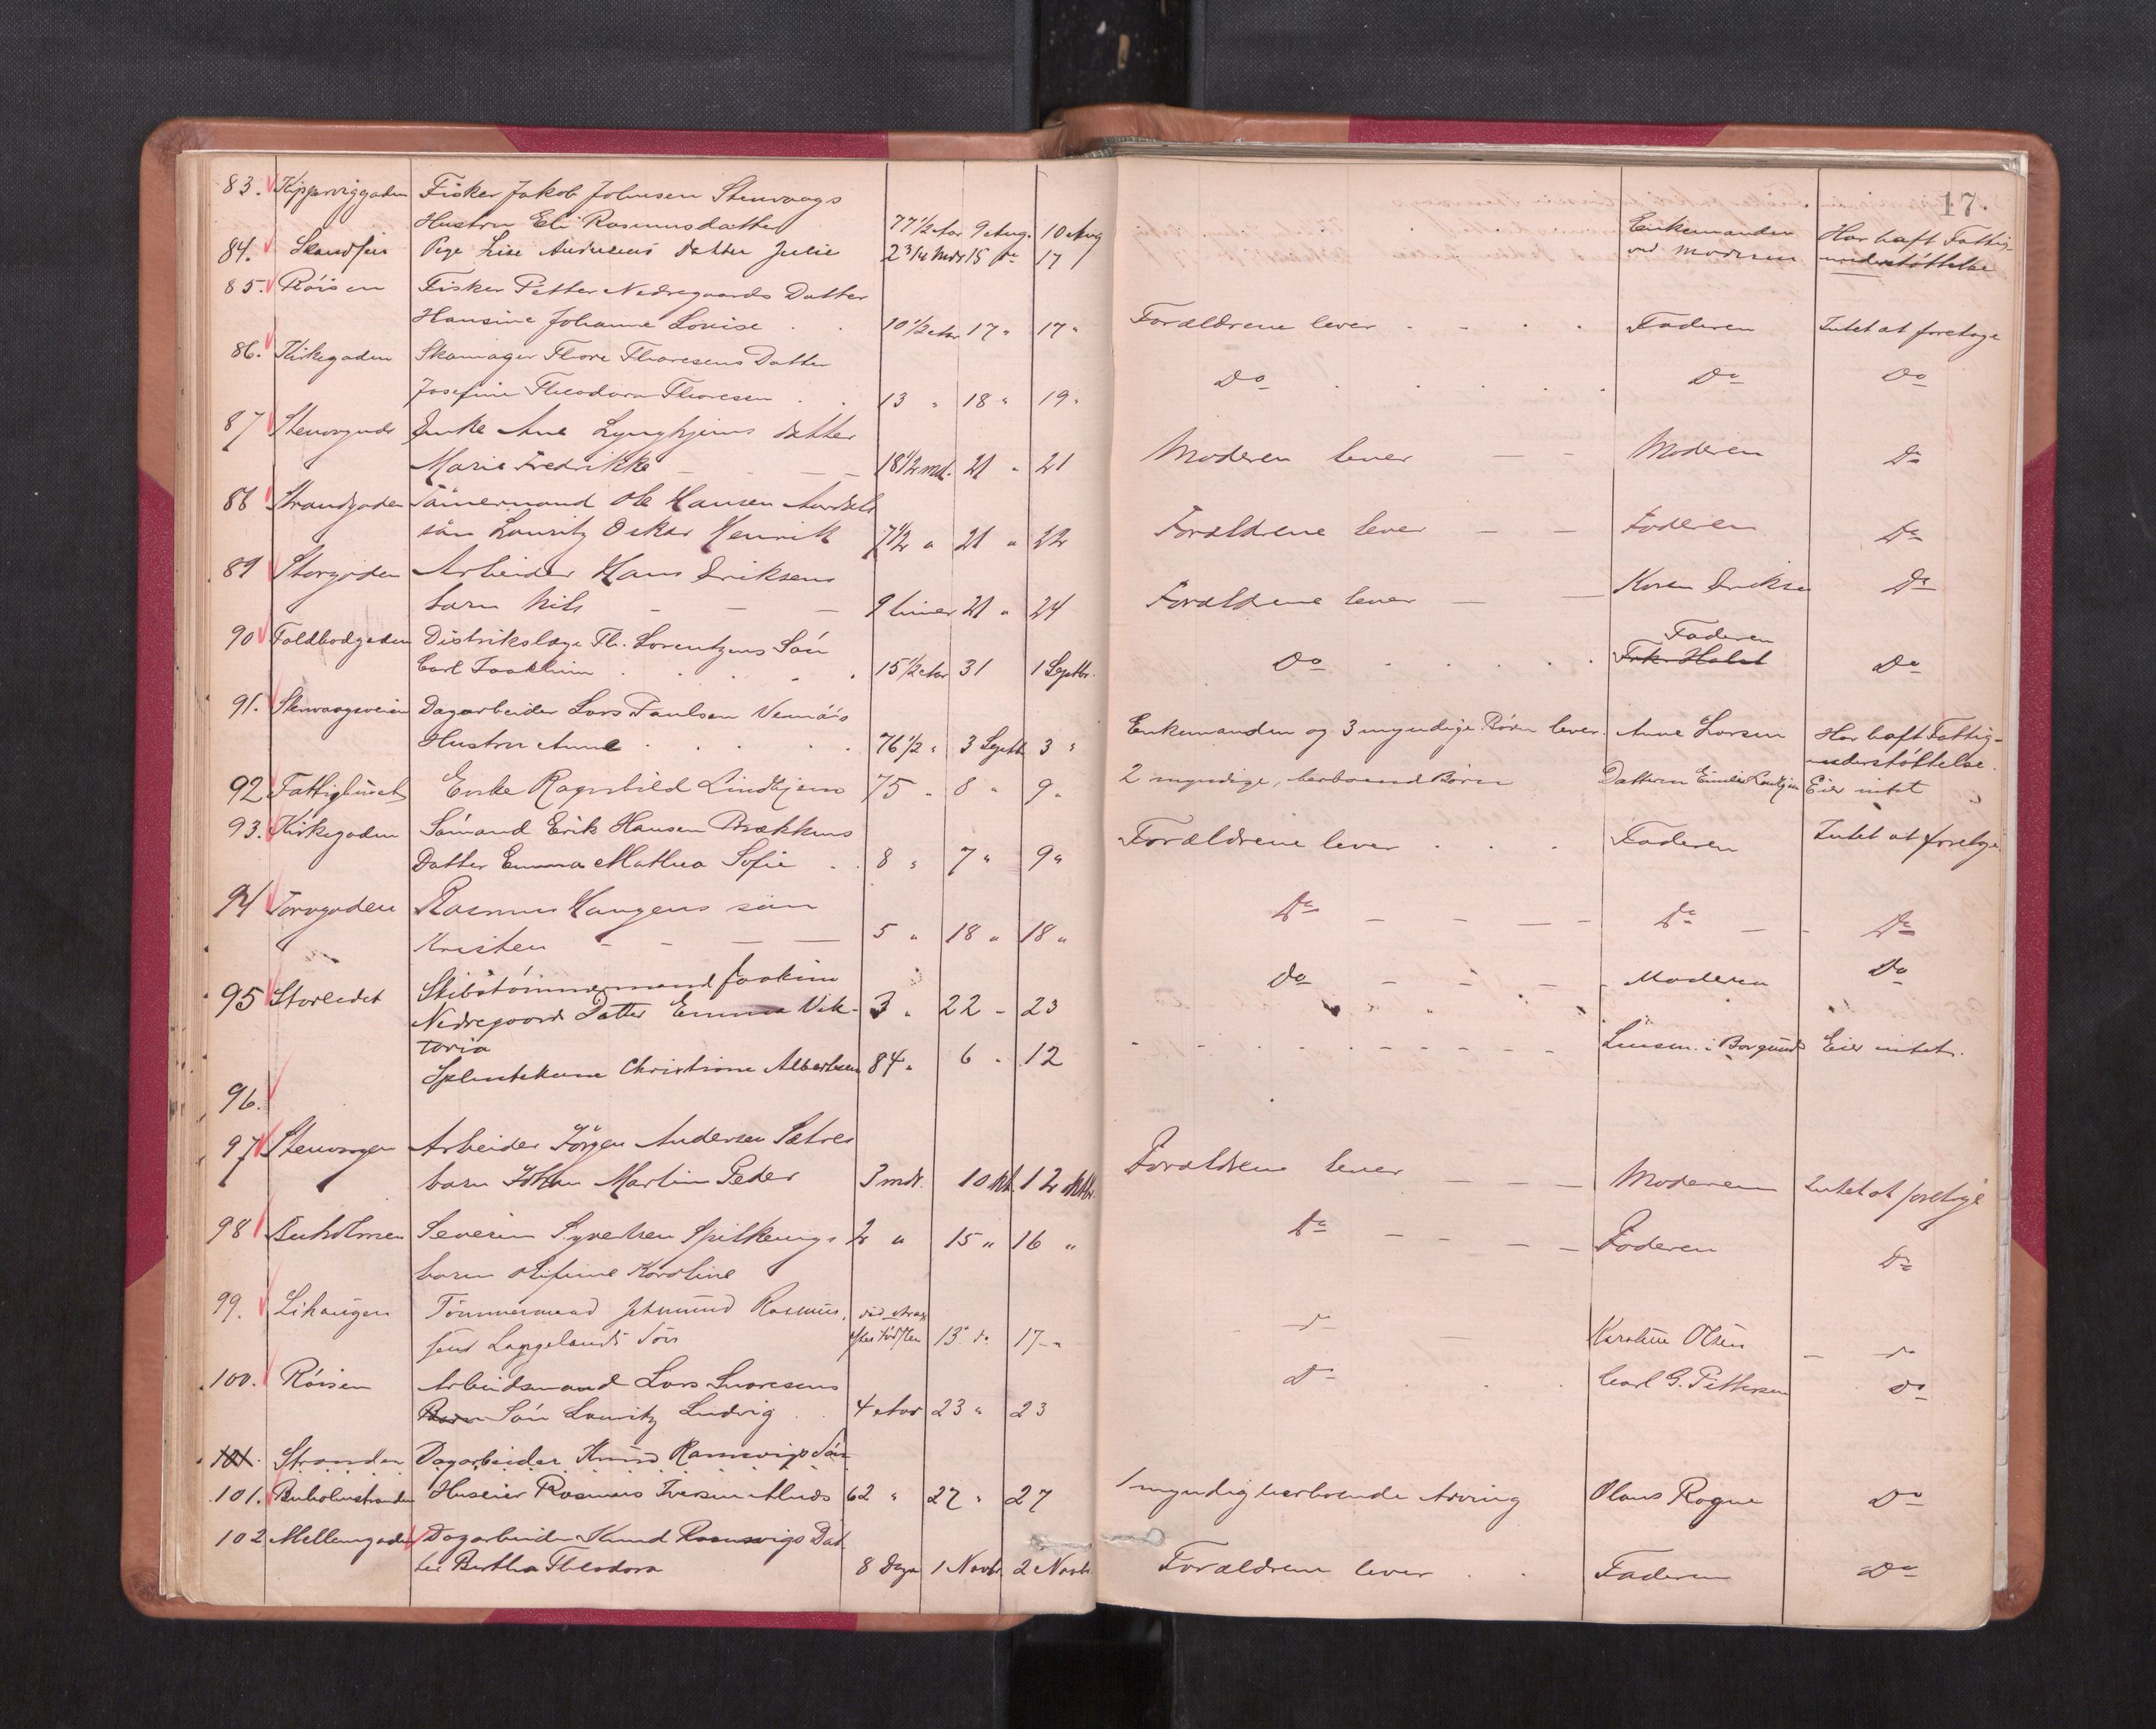 17.
83. Kipperviggaden Fisker Jakob Johnsen Stenvaags
Hustru Eli Rasmusdatter 77 1/2 Aar 9 Aug. 10 Aug Enkemanden Har haft Fattig-
understøttelse
84. Skandsen Pige Lise Andresens Datter Julie 2 3/4 Mdr 15 do 17 ved Moderen
85. Röisen Fisker Petter Nedregaards Datter
Hansine Johanne Lovise . . 10 1/2 Aar 17 " 17 " Forældrene lever . . . . Faderen Intet at foretage
86. Kirkegaden Skomager Thore Thoresens Datter
Josefine Theodora Thoresen . . 13 " 18 " 19 " Do . . . . . Do Do
87 Enke Ane Lynghjems datter
Marie Fredrikke 18 1/2 md. 21 " 21 Moderen lever — — Moderen Do
88 Strandgaden Tømermand Ole Hansen
søn Lauritz Oskar Henrik 7 1/2 " 21 " 22 Forældrene lever — — Faderen Do
89 Storgaden Arbeider Hans Eriksens
barn Nils — — — 9 timer 21 " 24 Forældrene lever — — Do
90 Toldbodgaden Distriktslæge Th. Lorentzens Søn
Carl Joakhim . . . . . 15 1/2 Aar 31 1 Septbr. Do . . . . . Faderen Do
Frk. Holst
91. Stenvaagsveien Dagarbeider Lars Paulsen Vemøs
Hustru Anne . . . . . 76 1/2 " 3 Septb 3 " Enkemanden og 3 myndige Børn lever. Anne Larsen Har haft Fattig-
understøttelse.
92 Fattighuset Enke Ragnhild Lindhjem 75 " 8 " 9 " 2 myndige, herboende Børn Datteren Emilie Eier intet
93. Kirkegaden Sømand Erik Hansen Brækkens
Datter Emma Mathea Sofie . . 8 " 7 " 9 " Forældrene lever . . . Faderen Intet at foretage.
94 Torvgaden Rasmus Haugens søn
Kristen — — — — 5 " 18 " 18 " Do — — — — Do — — Do
95 Storledet Skibstømmermand Joakim
Nedregaards Datter Emma Vik- 3 " 22 - 23 Do — — — — Moderen Do
toria
96. Christine Albertsen 84 " 6 " 12 Lensm. i Borgund Eier intet.
97 Stenvaagen Arbeider Jörgen Andersen Sætres
barn Johan Martin Peder 3 mdr. 10 okt. 12 oktbr. Forældrene lever — — — Moderen Intet at foretage
98 Buholmen Severin Syvertsen Spilkevigs 2 " 15 " 16 " Do — — — — Faderen Do
barn Karoline
99. Lihaugen Tömmermand Rasmus,
sens Langelands Søn død strax
efter Födslen 13 do. 17 — " — do — Karoline Olsen — do
100. Röisen Arbeidsmand Lars Snoresens
Barn Søn Lauritz Ludvig . . 4 Aar 23 " 23 Do . . . Carl G. Pettersen Do
101. Stranden Dagarbeider Knud Ramsvigs Søn
101. Buholmstranden Huseier Rasmus Iversen 62 " 27 " 27 1 myndig herboende Arving Olaus Rogne Do
102 Mellemgaden Dagarbeider Knud Ramsvigs Dat
ter Bertha Theodora 8 Dage 1 Novbr. 2 Novbr. Forældrene lever . . Faderen Do